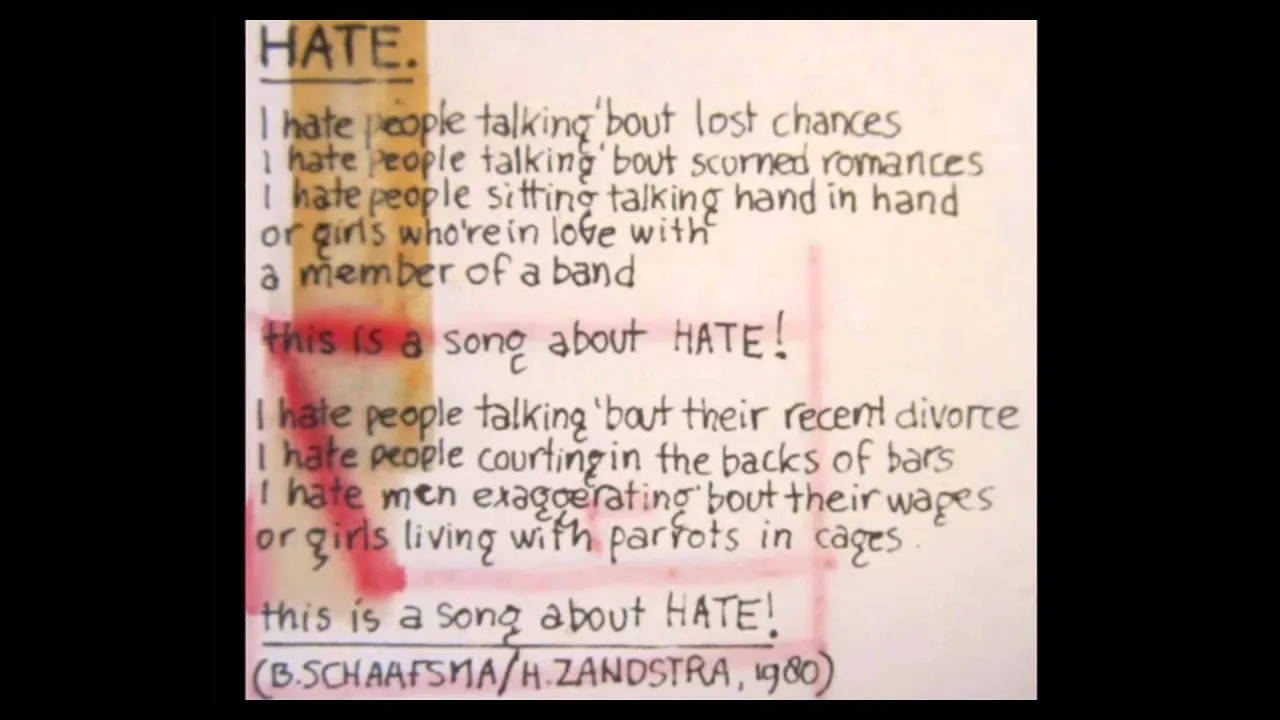 HATE.
I hate people talking 'bout lost chances
I hate people talking 'bout scurned romances
I hate people sitting talking hand in hand
or girls who're in love with
a member of a band
this is a song about HATE!
I hate people talking 'bout their recent divorce
I hate people courting in the backs of bars
I hate men exaggerating 'bout their wages
or girls living with parrots in cages.
this is a song about HATE!
(B.SCHAAFSMA/H.ZANDSTRA, 1980)